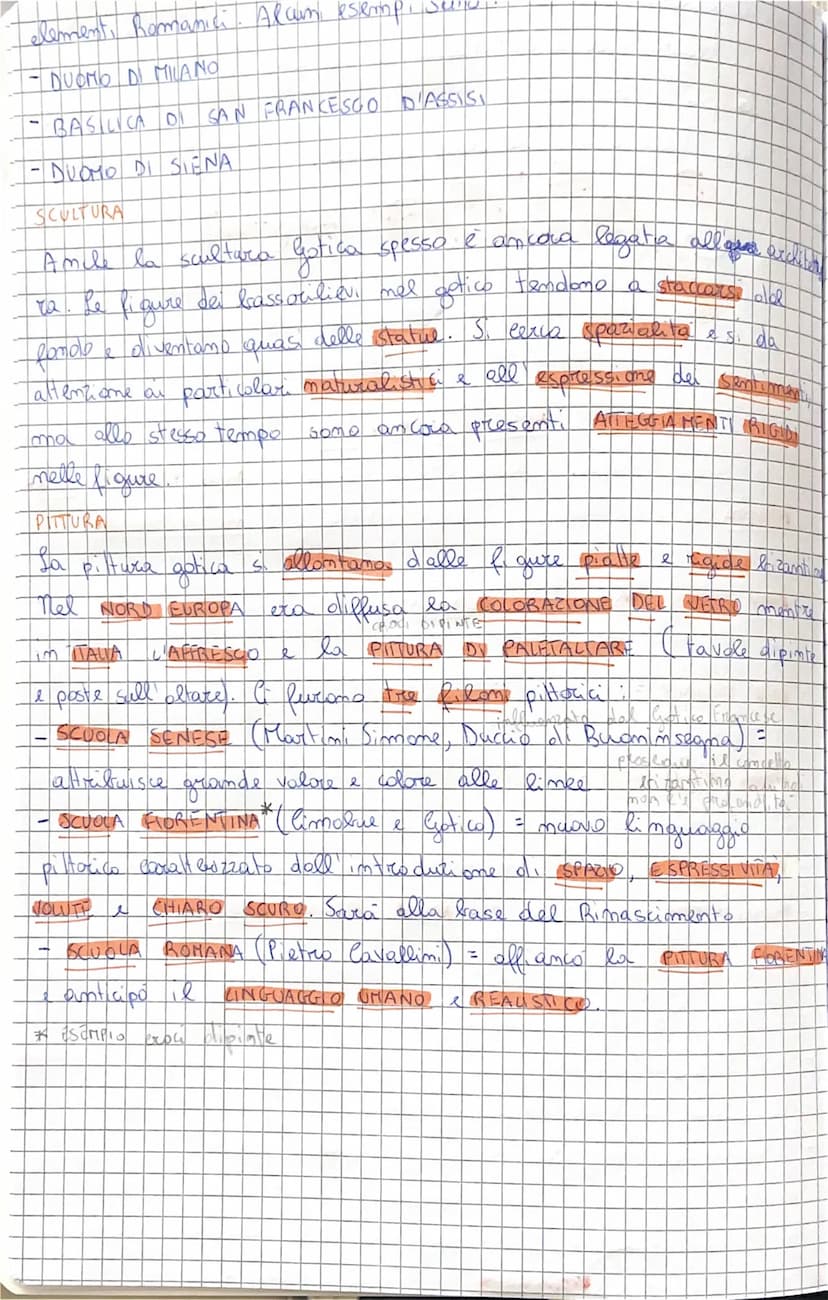 elementi Romanici. Alcuni esempi sono:
- DUOMO DI MILANO
- BASILICA DI SAN FRANCESCO D'ASSISI
- DUOMO DI SIENA
SCULTURA
Anche la scultura Gotica spesso è ancora legata all' architettu
ra. Le figure dei bassorilievi nel gotico tendono a staccarsi dal
fondo e diventano quasi delle statue. Si cerca spazialità e si da
attenzione ai particolari naturalistici e all'espressione dei sentimenti,
ma allo stesso tempo sono ancora presenti ATTEGGIAMENTI RIGIDI
nelle figure.
PITTURA
La pittura gotica si allontana dalle figure piatte e rigide bizantine
Nel NORD EUROPA era diffusa la COLORAZIONE DEL VETRO mentre
CROCI DIPINTE
in ITALIA L'AFFRESCO e la PITTURA DI PALETALTARE (tavole dipinte
e poste sull'altare). Ci furono tre filoni pittorici:
influenzato dal Gotico Francese
- SCUOLA SENESE (Martini Simone, Duccio di Buoninsegna) =
presenza il concetto
attribuisce grande valore e colore alle linee
bizantino
non c'è profondità
- SCUOLA FIORENTINA* (Cimabue e Gotico) = nuovo linguaggio
pittorico caratterizzato dall'introduzione di SPAZIO, ESPRESSIVITÀ,
VOLUTI e CHIARO SCURO. Sarà alla base del Rinascimento
- SCUOLA ROMANA (Pietro Cavallini) = affiancò la PITTURA FIORENTINA
e anticipò il LINGUAGGIO UMANO e REALISTICO.
* ESEMPIO croci dipinte